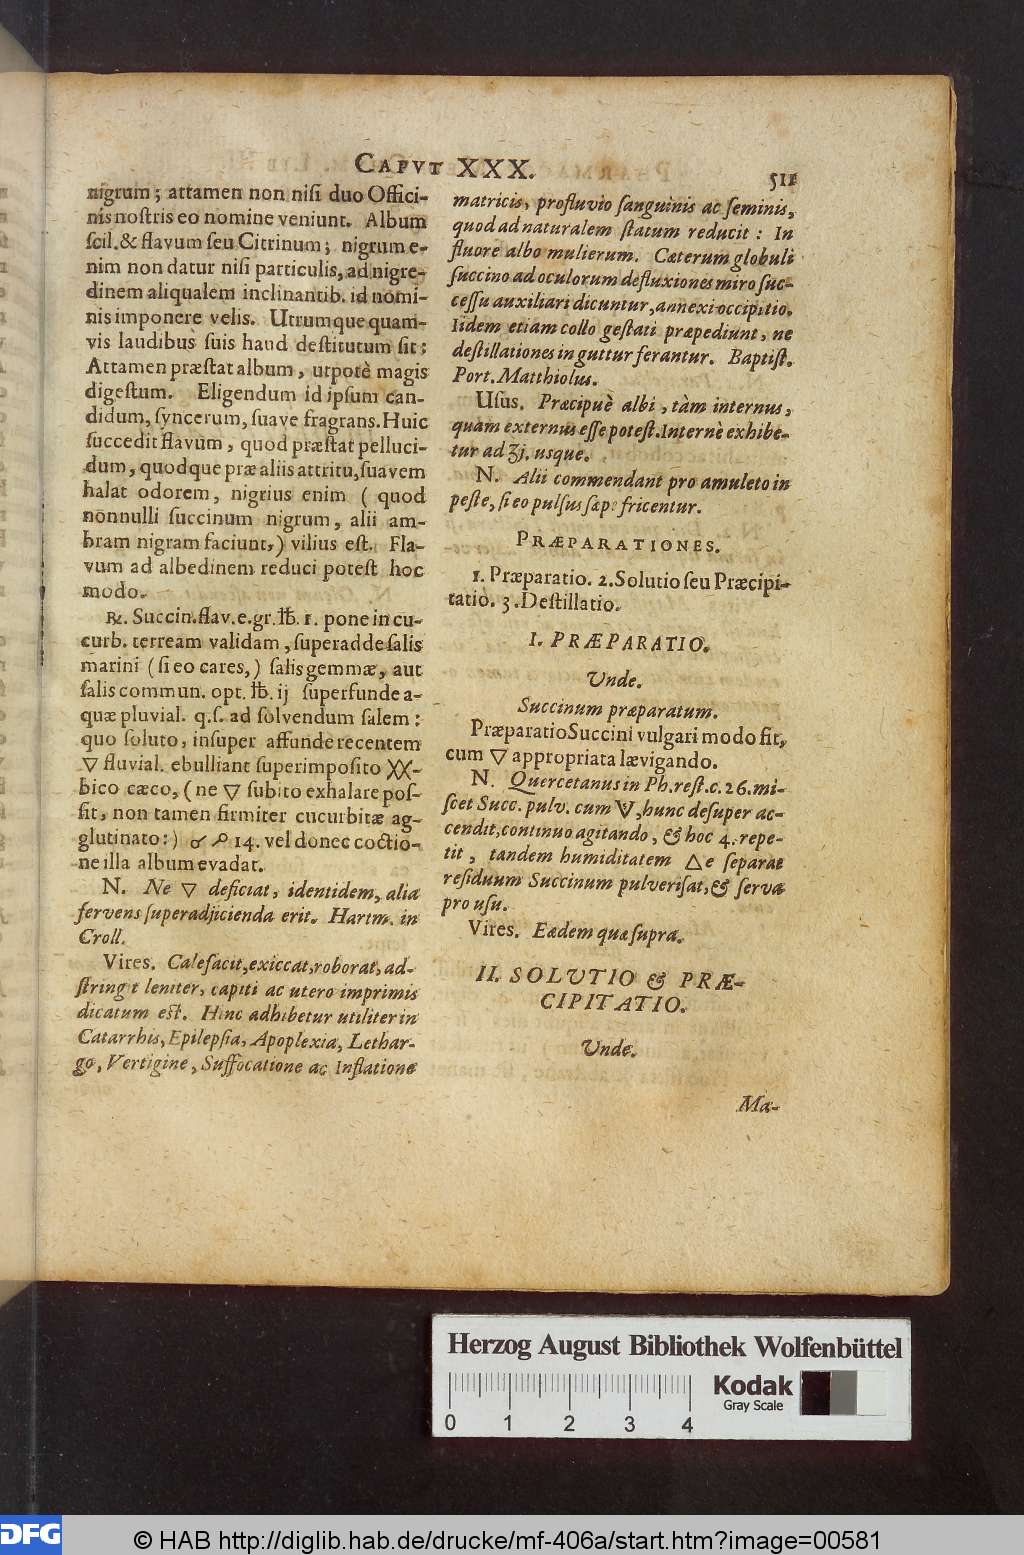 CAPVT XXX.
511
nigrum; attamen non nisi duo Offici-
nis nostris eo nomine veniunt. Album
scil. & flavum seu Citrinum; nigrum e-
nim non datur nisi particulis, ad nigre-
dinem aliqualem inclinantib. id nomi-
nis imponere velis. Utrumque quam-
vis laudibus suis haud destitutum sit;
Attamen præstat album, utpotè magis
digestum. Eligendum id ipsum can-
didum, syncerum, suave fragrans. Huic
succedit flavum, quod præstat pelluci-
dum, quodque præ aliis attritu, suavem
halat odorem, nigrius enim ( quod
nonnulli succinum nigrum, alii am-
bram nigram faciunt,) vilius est. Fla-
vum ad albedinem reduci potest hoc
modo.
℞. Succin. flav. e. gr. ℔. 1. pone in cu-
curb. terream validam, superadde salis
marini (si eo cares,) salis gemmæ, aut
salis commun. opt. ℔. ij superfunde a-
quæ pluvial. q. s. ad solvendum salem:
quo soluto, insuper affunde recentem
🜄 fluvial. ebulliant superimposito XX-
bico cæco, (ne 🜄 subito exhalare pos-
sit, non tamen firmiter cucurbitæ ag-
glutinato:) 14. vel donec coctio-
ne illa album evadat.
N. Ne 🜄 deficiat, identidem, alia
fervens superadjicienda erit. Hartm. in
Croll.
Vires. Calefacit, exiccat, roborat, ad-
stringit leniter, capiti ac utero imprimis
dicatum est. Hinc adhibetur utiliter in
Catarrhis, Epilepsia, Apoplexia, Lethar-
go, Vertigine, Suffocatione ac Inflatione
matricis, profluvio sanguinis ac seminis,
quod ad naturalem statum reducit: In
fluore albo mulierum. Cæterum globuli
succino ad oculorum defluxiones miro suc-
cessu auxiliari dicuntur, annexi occipitio.
Iidem etiam collo gestati præpediunt, ne
destillationes in guttur ferantur. Baptist.
Port. Matthiolus.
Usus. Præcipuè albi, tàm internus,
quam externus esse potest. Internè exhibe-
tur ad ʒj. usque.
N. Alii commendant pro amuleto in
peste, si eo pulsus sæpe fricentur.
PRÆPARATIONES.
1. Præparatio. 2. Solutio seu Præcipi-
tatio. 3. Destillatio.
I. PRÆPARATIO.
Unde.
Succinum præparatum.
Præparatio Succini vulgari modo fit,
cum 🜄 appropriata lævigando.
N. Quercetanus in Ph. rest. c. 26. mi-
scet Succ. pulv. cum , hunc desuper ac-
cendit, continuo agitando, & hoc 4. repe-
tit, tandem humiditatem 🜂e separat
residuum Succinum pulverisat, & serva
pro usu.
Vires. Eædem quæ supra.
II. SOLVTIO & PRÆ-
CIPITATIO.
Unde.
Ma-
Herzog August Bibliothek Wolfenbüttel
0 1 2 3 4
Kodak
Gray Scale
DFG
© HAB http://diglib.hab.de/drucke/mf-406a/start.htm?image=00581